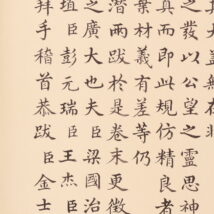 之發以公望之靈思神
真而即此規仿精良者
葉材義有差等仍
潛兩跋於是卷末更徵
之廣大也夫臣梁國治
埴臣彭元瑞臣王杰臣
拜手稽首恭跋臣金士